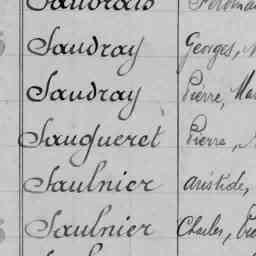 Saudray Georges,
Saudray Pierre,
Sauqueret Pierre,
Saulnier Aristide,
Saulnier Charles,